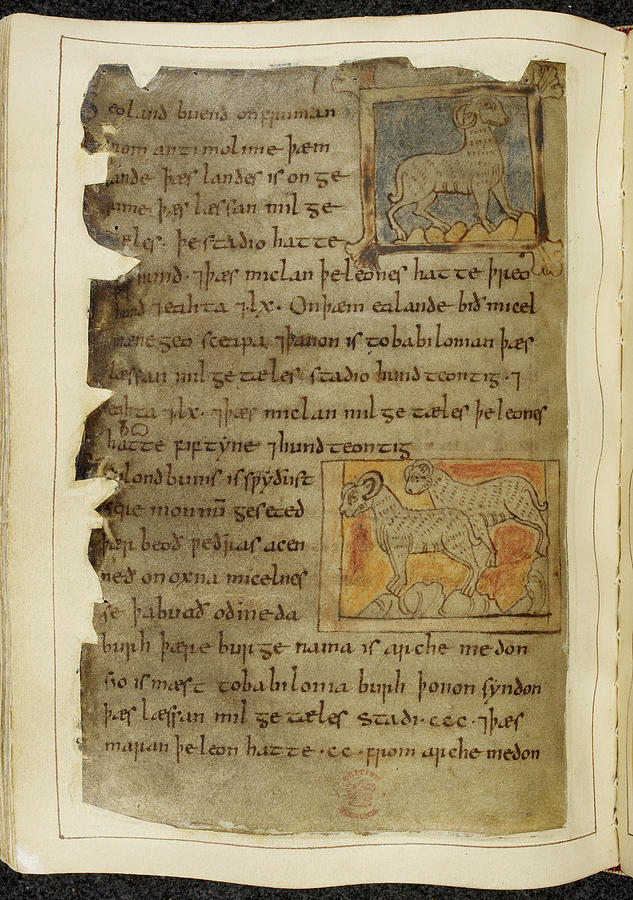 eoland buend onfruman
from antimolime þæm
lande þæs landes is on ge
rime þæs læssan mil ge
tæles þe stadio hatte
fif hund ⁊ þæs miclan þe leones hatte þreo
hund ⁊ eahta ⁊ lx · On þæm ealande bið micel
mænegeo sceapa ⁊ þanon is to babilonian þæs
læssan mil ge tæles stadio hundteontig · ⁊
eahta ⁊ lx · ⁊ þæs miclan mil ge tæles þe leones
hatte fiftyne ⁊ hundteontig
þæt lond bunis is spyðust
monnū geseted
þær beoð peðras acen
nede on oxna micelnes
se þa buað oð meda
burh þære burge nama is archemedon
sio is mæst to babilonia burh þonon syndon
þæs læssan mil ge tæles stadi · ccc · ⁊ þæs
maran þe leon hatte · cc · from archemedon
BRITISH
MUSEUM